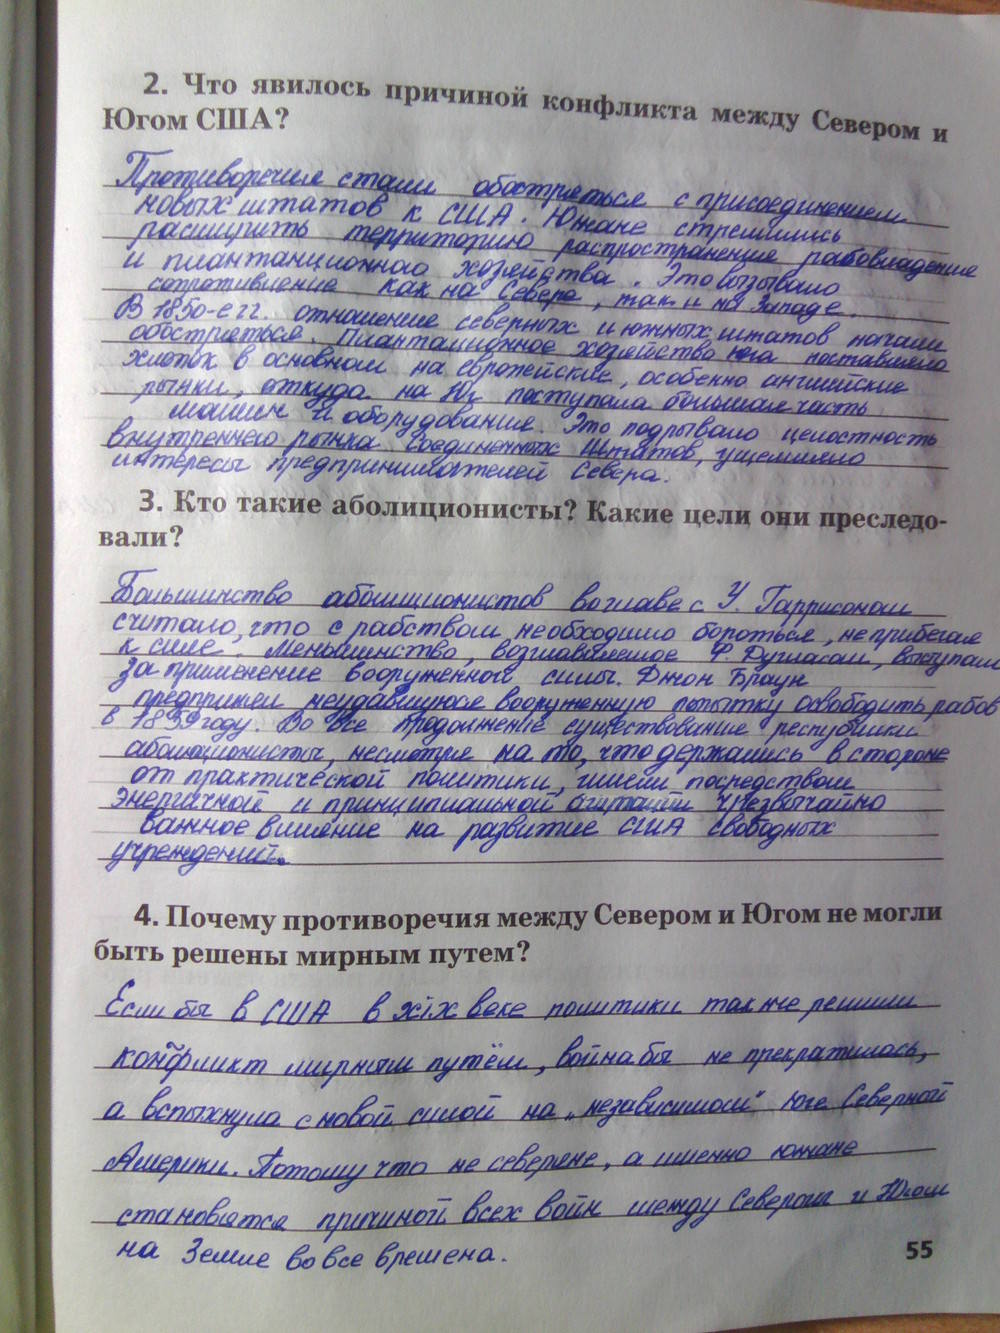 2. Что явилось причиной конфликта между Севером и
Югом США?
Противоречия стали обостряться с присоединением
новых штатов к США. Южане стремились
расширить территорию распространения рабовладения
и плантационного хозяйства. Это вызывало
сопротивление как на Севере, так и на Западе.
В 1850-е гг. отношение северных и южных штатов начали
обостряться. Плантационное хозяйство Юга поставляло
хлопок в основном на европейские, особенно английские
рынки, откуда на Юг поступала большая часть
машин и оборудования. Это подрывало целостность
внутреннего рынка Соединенных Штатов, ущемляло
интересы предпринимателей Севера.
3. Кто такие аболиционисты? Какие цели они преследо-
вали?
Большинство аболиционистов во главе с У. Гаррисоном
считало, что с рабством необходимо бороться, не прибегая
к силе. Меньшинство, возглавляемое Ф. Дугласом, выступало
за применение вооруженной силы. Джон Браун
предпринял неудавшуюся вооруженную попытку освободить рабов
в 1859 году. Во все продолжение существования республики
аболиционисты, несмотря на то, что держались в стороне
от практической политики, имели посредством
энергичной и принципиальной агитации чрезвычайно
важное влияние на развитие США свободных
учреждений.
4. Почему противоречия между Севером и Югом не могли
быть решены мирным путем?
Если бы в США в XIX веке политики также решили
конфликт мирным путём, война бы не прекратилась,
а вспыхнула с новой силой на „независимом" юге Северной
Америки. Потому что не северяне, а именно южане
становятся причиной всех войн между Севером и Югом
на Земле во все времена.
55